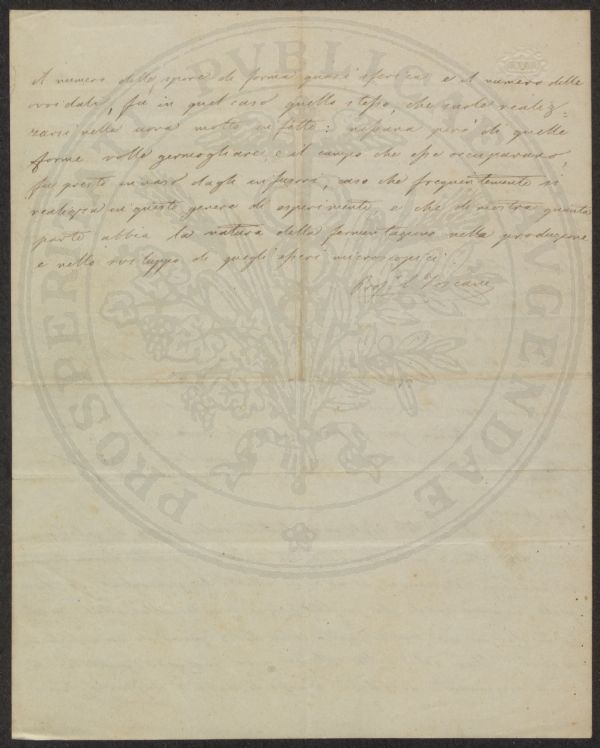 Il numero delle spore di forma quasi sferica, e il numero delle
ovoidali, fu in quel caso quello stesso, che suole realiz-
zarsi nelle uova molto infette: nessuna però di quelle
forme volle germogliare, e il campo che esse occupavano,
fu presto invaso dagli infusori, caso che frequentemente si
realizza in questo genere di esperimenti e che dimostra quanta
parte abbia la natura della fermentazione nella produzione
e nello sviluppo di quegli esseri microscopici.
Prof. Toscani
PROSPERITATI PVBLICAE AVGENDAE